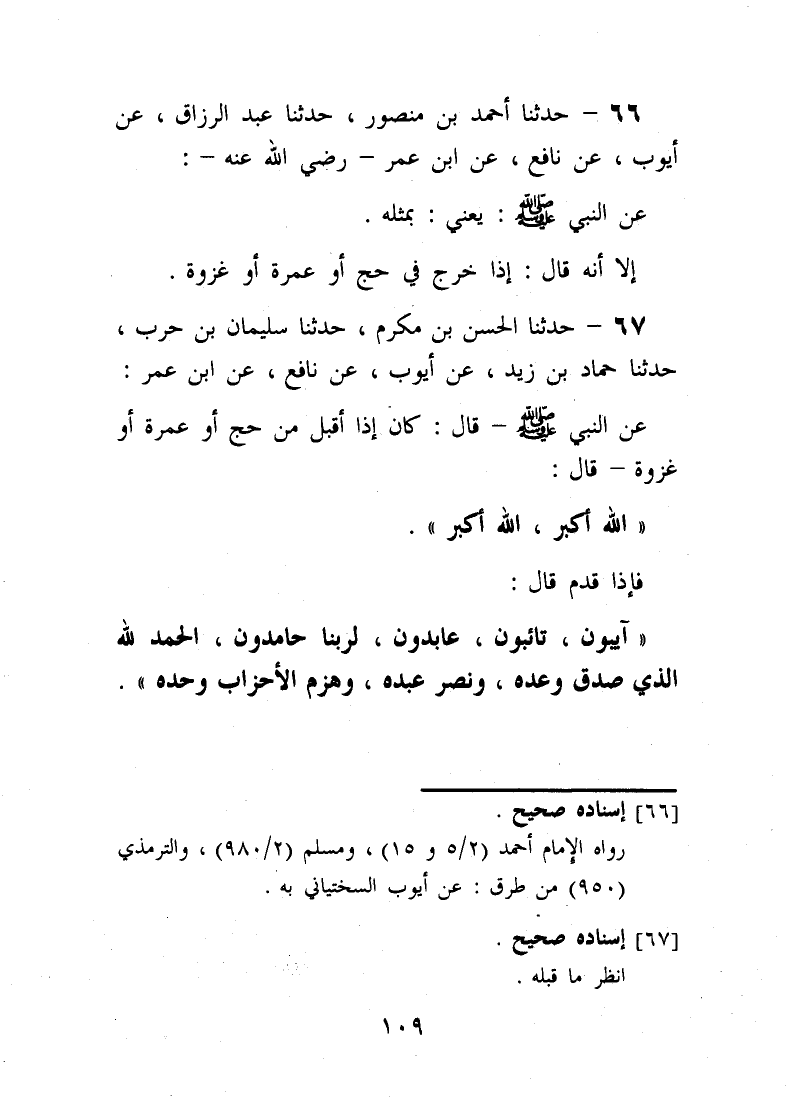 ٦٦ – حدثنا أحمد بن منصور ، حدثنا عبد الرزاق ، عن
أيوب ، عن نافع ، عن ابن عمر – رضي الله عنه – :
عن النبي ﷺ : يعني : بمثله .
إلا أنه قال : إذا خرج في حج أو عمرة أو غزوة .
٦٧ – حدثنا الحسن بن مكرم ، حدثنا سليمان بن حرب ،
حدثنا حماد بن زيد ، عن أيوب ، عن نافع ، عن ابن عمر :
عن النبي ﷺ – قال : كان إذا أقبل من حج أو عمرة أو
غزوة – قال :
« الله أكبر ، الله أكبر » .
فإذا قدم قال :
« آيبون ، تائبون ، عابدون ، لربنا حامدون ، الحمد لله
الذي صدق وعده ، ونصر عبده ، وهزم الأحزاب وحده » .
[٦٦] إسناده صحيح .
رواه الإمام أحمد (٥/٢ و ١٥) ، ومسلم (٩٨٠/٢) ، والترمذي
(٩٥٠) من طرق : عن أيوب السختياني به .
[٦٧] إسناده صحيح .
انظر ما قبله .
١٠٩